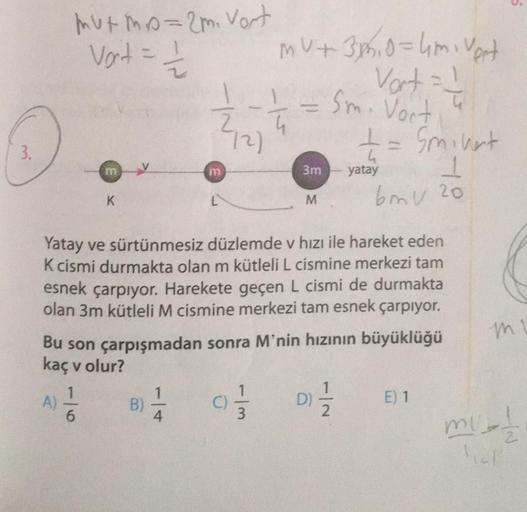 mv + m.0 = 2m. Vort
Vort = 1/2
mv + 3m.0 = 4m. Vort
Vort = 1/4
1/2 - 1/4 = 5m. Vort
(2)
1/4 = 5m. Vort
1/20
6mv
3.
m v m 3m yatay
K L M
Yatay ve sürtünmesiz düzlemde v hızı ile hareket eden
K cismi durmakta olan m kütleli L cismine merkezi tam
esnek çarpıyor. Harekete geçen L cismi de durmakta
olan 3m kütleli M cismine merkezi tam esnek çarpıyor.
Bu son çarpışmadan sonra M'nin hızının büyüklüğü
kaç v olur?
A) 1/6 B) 1/4 C) 1/3 D) 1/2 E) 1